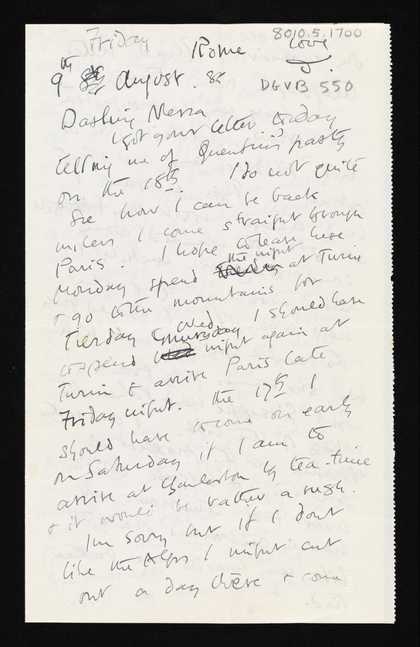 Friday Rome Love 8010.5.1700
9th August. 85 D.
DGVB 550
Darling Nessa
I got your letter today
telling me of Quentin's party
on the 18th. I do not quite
see how I can be back
unless I come straight through
Paris. I hope to leave here
Monday spend the night at Turin
& go to the mountains for
Tuesday Wed. Thursday I should have
to spend night again at
Turin & arrive Paris late
Friday night. the 17th I
should have to come on early
on Saturday if I am to
arrive at Charleston by tea-time
& it would be rather a rush.
I'm sorry but if I don't
like the Alps I might cut
out a day there & come